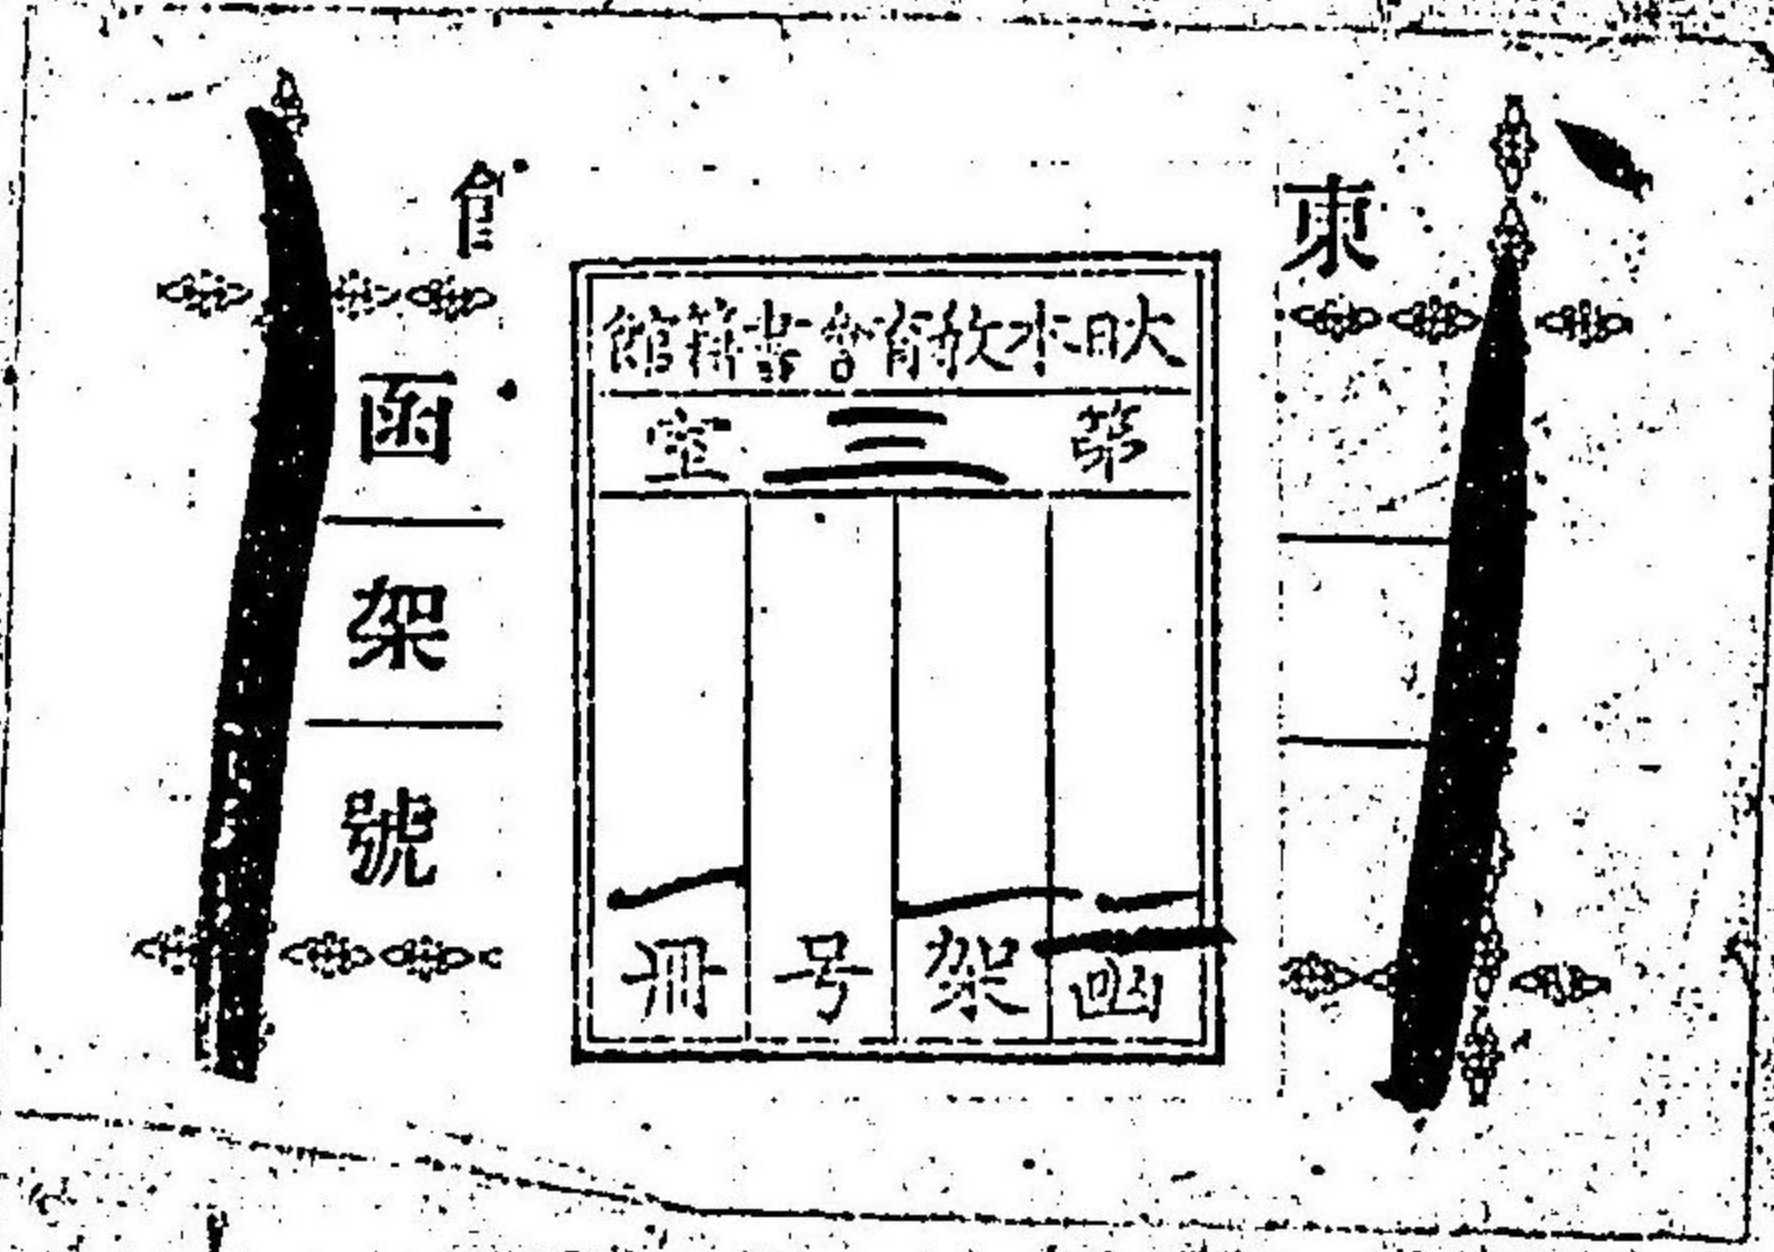 東
大日本教育會書籍館
第三室
函
架
号
冊
函
架
號